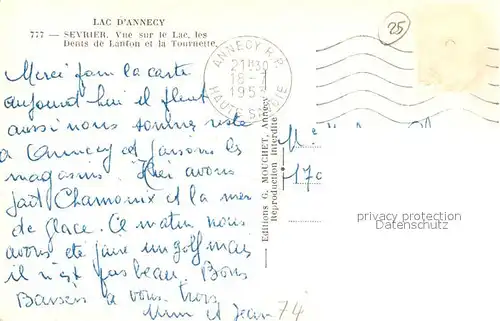 LAC D'ANNECY
777 — SEVRIER. Vue sur le Lac, les
Dents de Lanfon et la Tournette.
Merci pour la carte
aujourd'hui il pleut
aussi nous somme resté
a Annecy et faisons les
magasins. Hier avons
fait Chamonix et la mer
de Glace. Ce matin nous
avons été faire un golf mais
il n'est pas beau. Bons
Baisers a vous trois
Mimi et Jean
74
25
ANNECY R.P.
21H30
18-
195
HAUTE SAVOIE
Editions G. MOUCHET, Annecy
Reproduction interdite
privacy protection
Datenschutz